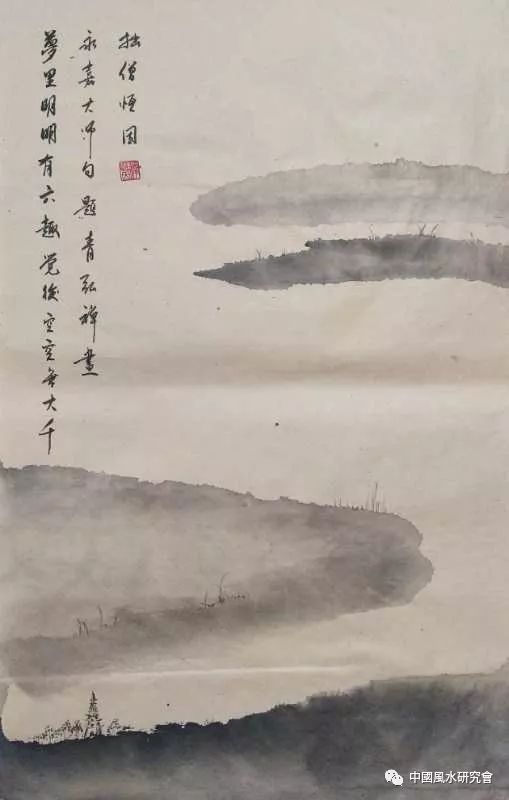 夢里明明有六趣觉後空空無大千
永嘉大师句题青弘禅畫
拙僧因
中國風水研究會